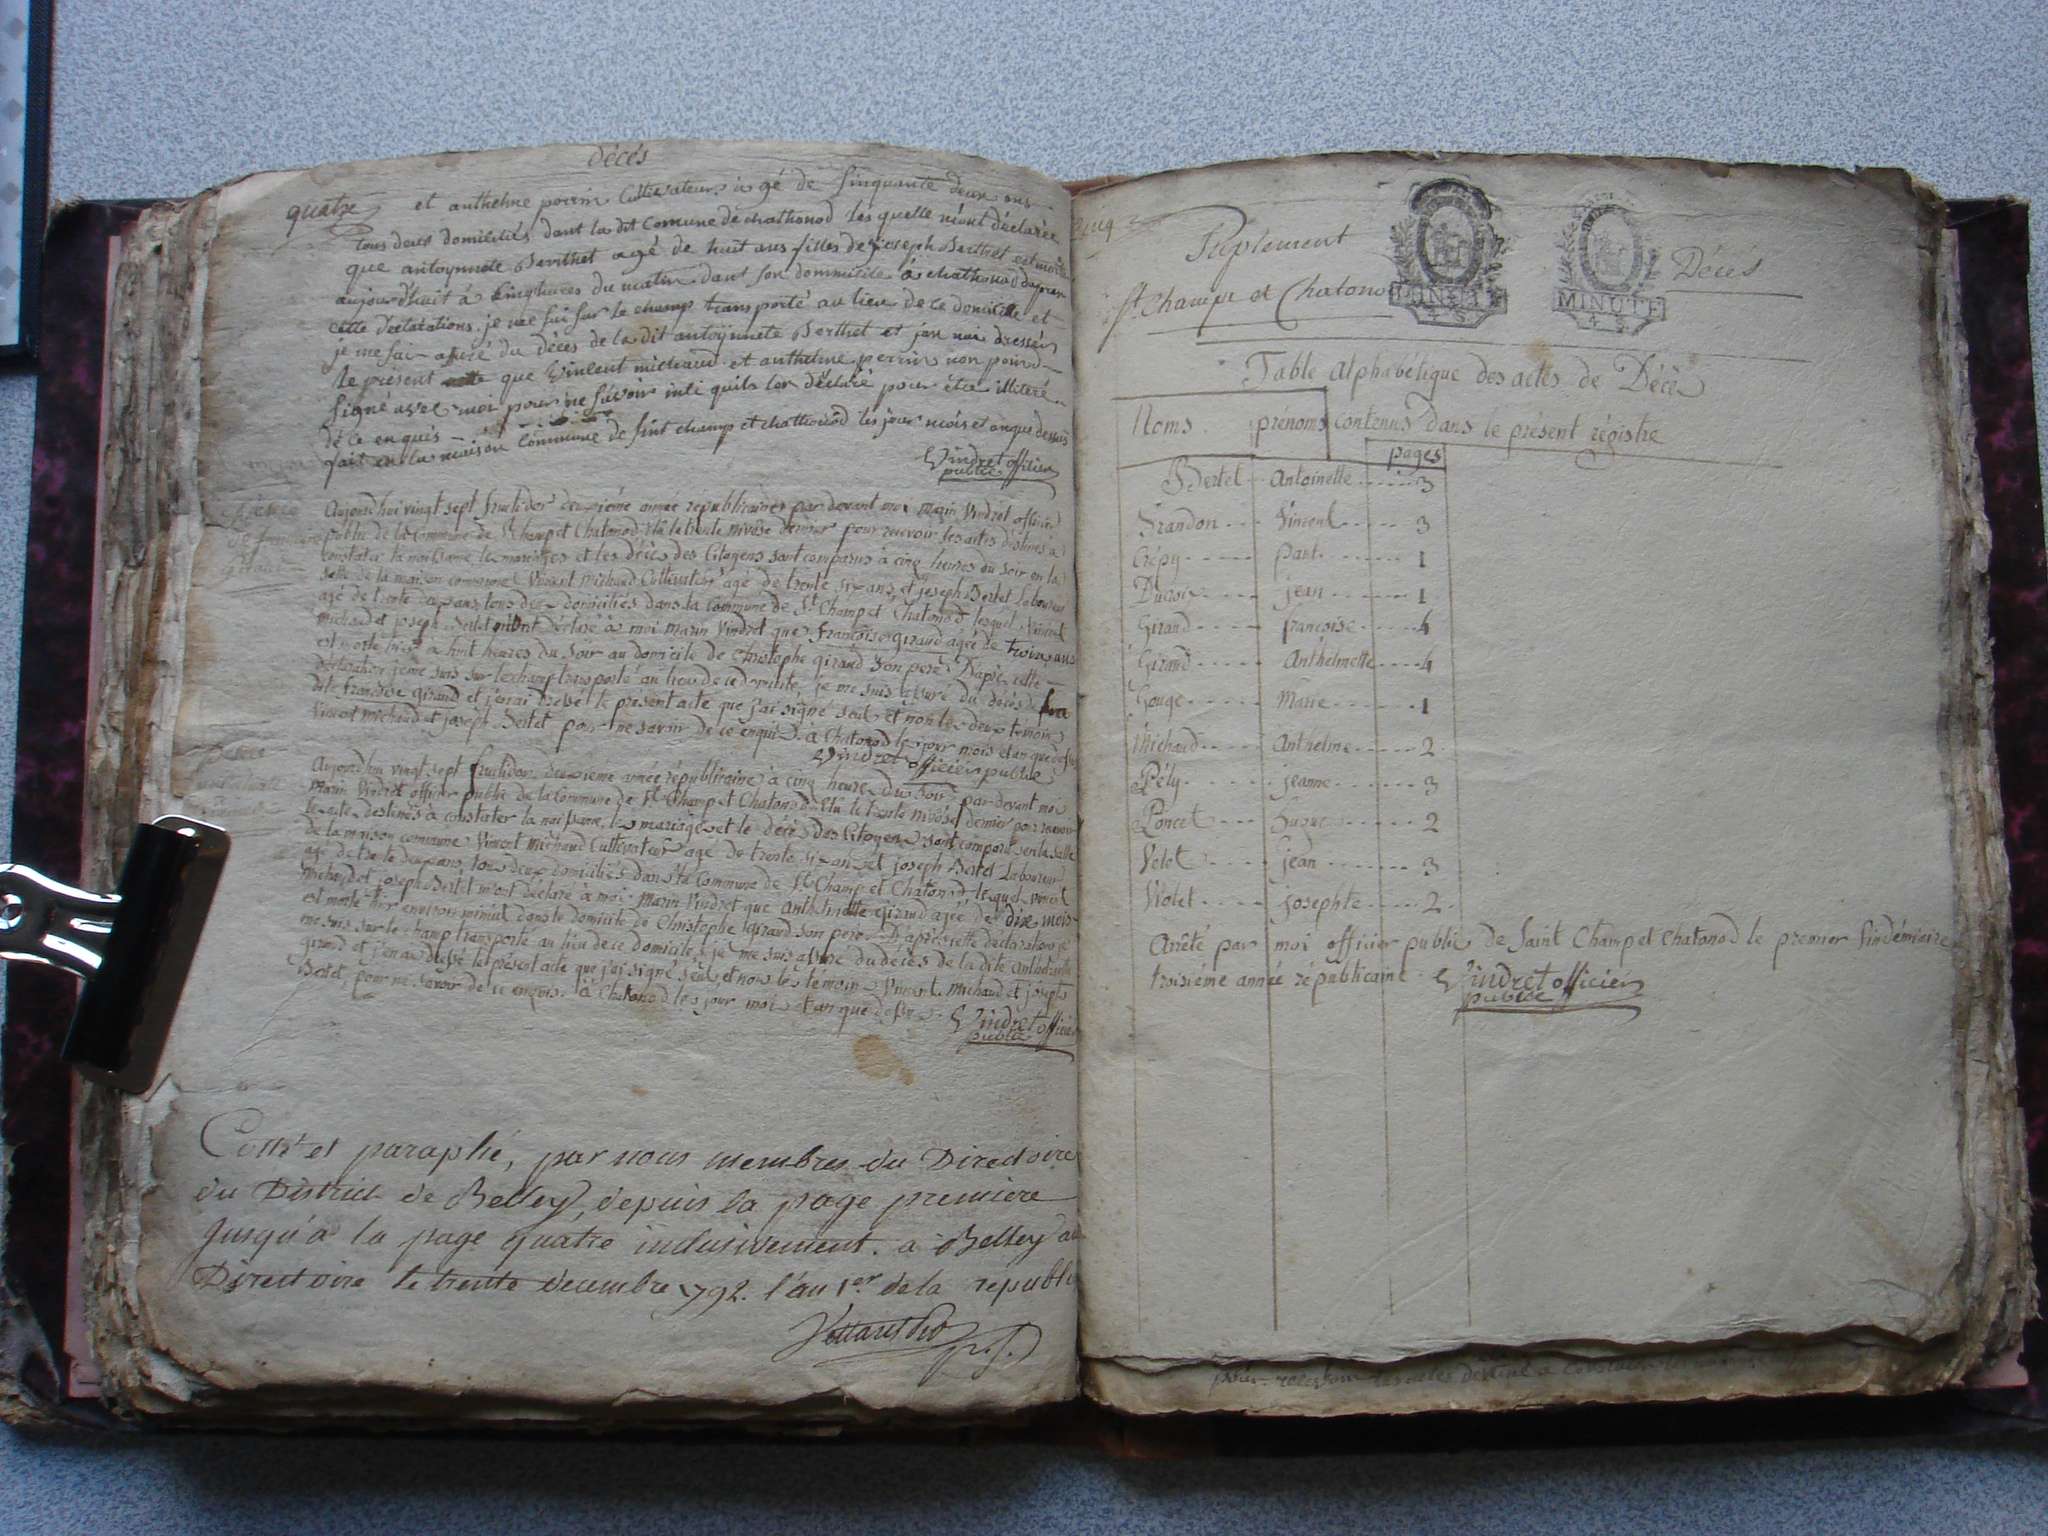 décés
quatre
et anthelme perrin Cultivateurs agé de sinquante deux ans
tous deus domiciliés dans la dit Comune de chathonod les quelle mont déclarée
que antoynnete Berthet agé de huit ans filles de joseph Berthet est morte
aujourd'huit à sinq hures du matin dans son dommicile à chathonod dapres
cette déclarations. je me sui sur le champ transporté au lieu de ce domicille et
je me sui assuré du déces de la dit antoynnete Berthet et jan nai dressér
le présent que vinsent michaud et anthelme perrin non poind
signé avec moi pour ne savoir inti quils lon déclaré pour étre illiteré
de ce enquis
fait en la maison commune de sint champ et chathonod les jour mois et an que dessus
Vindret officier
publice
Aujourdhui vingt sept fructidor deuxième année républicaine par devant moi Marin Vindret officier
public de la Commune de St Champ et Chatonod élu le trente nivôse dernier pour recevoir les actes destinés à
constater la naissance les mariages et les décès des Citoyens sont comparus à cinq heures du soir en la
salle de la maison commune Vincent Michaud Cultivateur agé de trente six ans et joseph Bertet Laboureur
agé de trente deux ans tous deux domiciliés dans la Commune de St Champ et Chatonod lesquel Vincent
michaud et joseph Bertet m'ont déclaré à moi Marin Vindret que françoise giraud agée de trois ans
est morte hier à huit heures du Soir au domicile de Christophe giraud son pere. D'après cette
déclaration je me suis sur le champ transporté au lieu de ce domicile, je me suis assuré du décès de
dite françoise giraud et j'en ai dressé le présent acte que j'ai signé seul et non les deux témoins
Vincent michaud et joseph Bertet pour ne savoir de ce enquis. à Chatonod le jour mois et an que dessus
Vindret officier publice
Aujourdhui vingt sept fructidor deuxième année républicaine à cinq heure du soir par devant moi
Marin Vindret officier public de la Commune de St Champ et Chatonod élu le trente nivôse dernier pour recevoir
les actes destinés à constater la naissance, les mariages et le décès des Citoyens sont comparus en la salle
de la maison commune Vincent Michaud Cultivateur agé de trente six ans et joseph Bertet Laboureur
agé de trente deux ans tous deux domiciliés dans la Commune de St Champ et Chatonod lequel vincent
Michaud et joseph Bertet m'ont déclaré à moi Marin Vindret que Anthelmette giraud agée de dix mois
est morte hier environ minuit dans le domicile de Christophe giraud son pere. D'après cette déclaration je
me suis sur le champ transporté au lieu de ce domicile, je me suis assuré du décès de la dite Anthelmette
giraud et j'en ai dressé le présent acte que j'ai signé seul, et non les témoins Vincent Michaud et joseph
Bertet, pour ne savoir de ce enquis. à Chatonod le jour mois et an que dessus
Vindret officier
publice
Cotté et paraphé, par nous membres du Directoire
du District de Belley, depuis la page premiere
jusqu'à la page quatre inclusivement. a Belley au
Directoire le trente decembre 1792. l'an 1er de la republ
Cinq
Suplement
Décès
St. Champ et Chatonod
MINUTE
4 S
Table alphabétique des actes de Décè
Noms prénoms contenus dans le present régistre
pages
Bertet Antoinette 3
Brandon Vincent 3
Crépy Paul 1
Ducroix jean 1
Girand françoise 4
Girand Anthelmette 4
Gouge Marie 1
Michaud Anthelme 2
Pély jeanne 3
Poncet 2
Velet jean 3
Violet josephte 2
Arrêté par moi officier public de Saint Champ et Chatonod le premier Vindémiaire
troisiéme année républicaine Vindret officier
publice
pour recevoir les actes destiné a constater